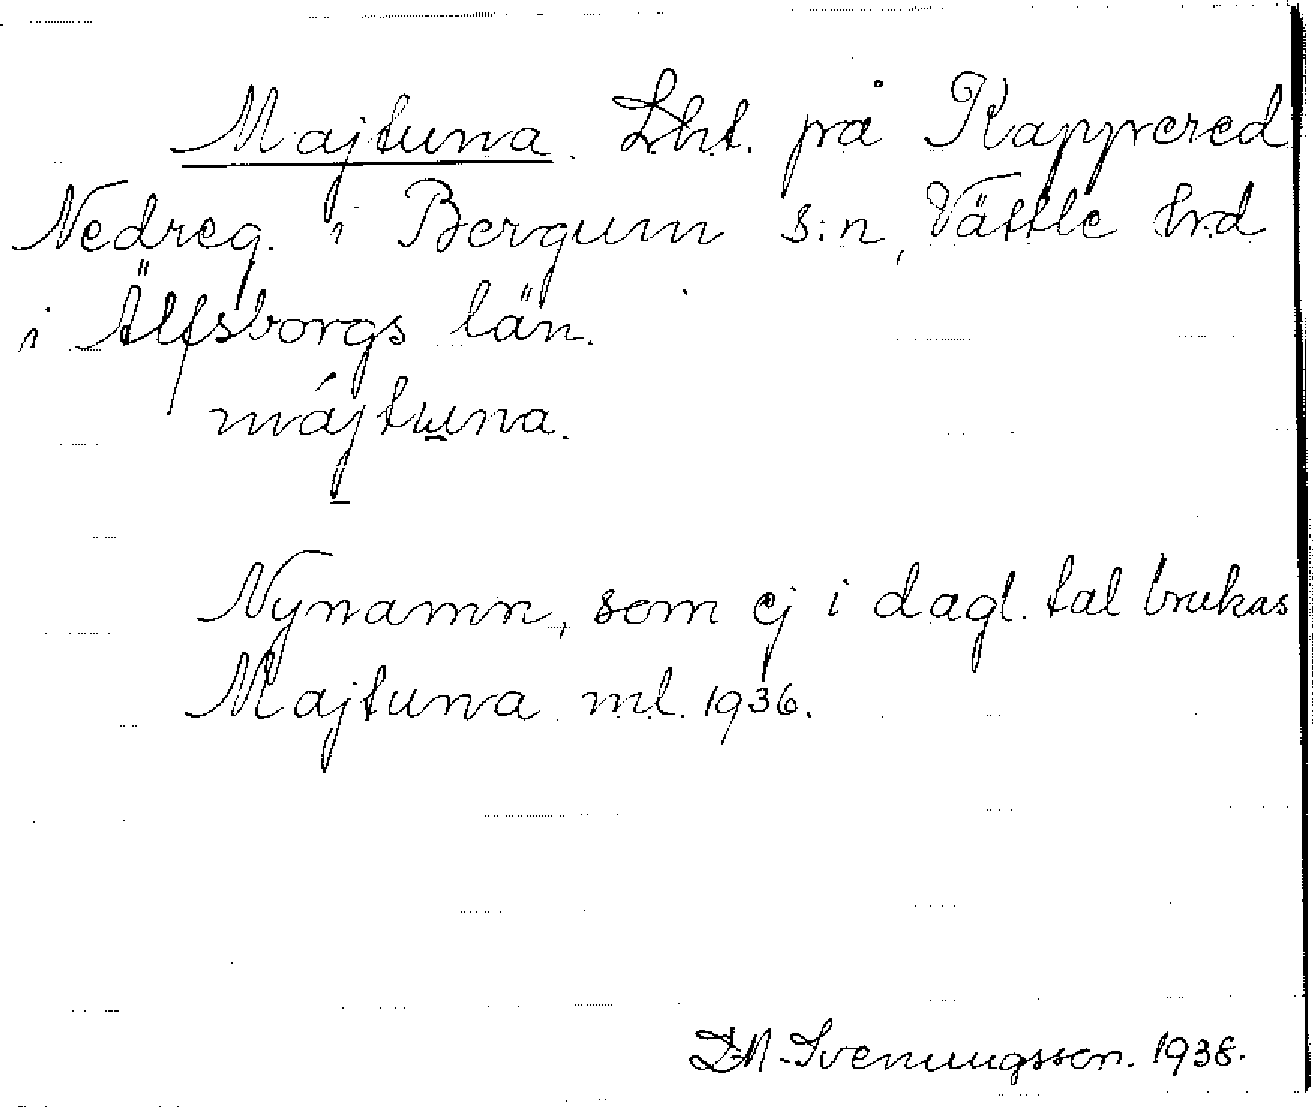 Majtuna. Lht. på Kappered
Nedreg. i Bergum s:n, Vättle hrd
i Älfsborgs län.
májtuna.
Nynamn, som ej i dagl. tal brukas
Majtuna ml. 1936.
Svenungsson. 1938.